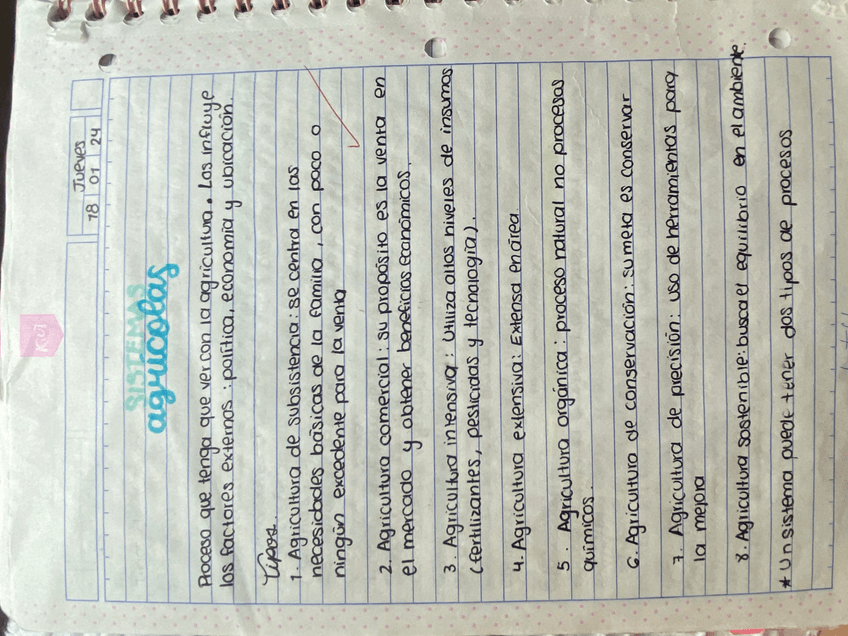 Jueves
18 01 24
SISTEMAS
agricolas
Proceso que tenga que ver con la agricultura. Los influye
los factores externos: política, economía y ubicación.
Tipos.
1. Agricultura de subsistencia: se centra en las
necesidades básicas de la familia, con poco o
ningún excedente para la venta
2. Agricultura comercial: su propósito es la venta en
el mercado y obtener beneficios económicos.
3. Agricultura intensiva: Utiliza altos niveles de insumos
(fertilizantes, pesticidas y tecnología).
4. Agricultura extensiva: Extensa en área
5. Agricultura orgánica: proceso natural no procesos
químicos.
6. Agricultura de conservación: su meta es conservar
7. Agricultura de precisión: uso de herramientas para
la mejora
8. Agricultura sostenible: busca el equilibrio en el ambiente.
* Un sistema puede tener dos tipos de procesos